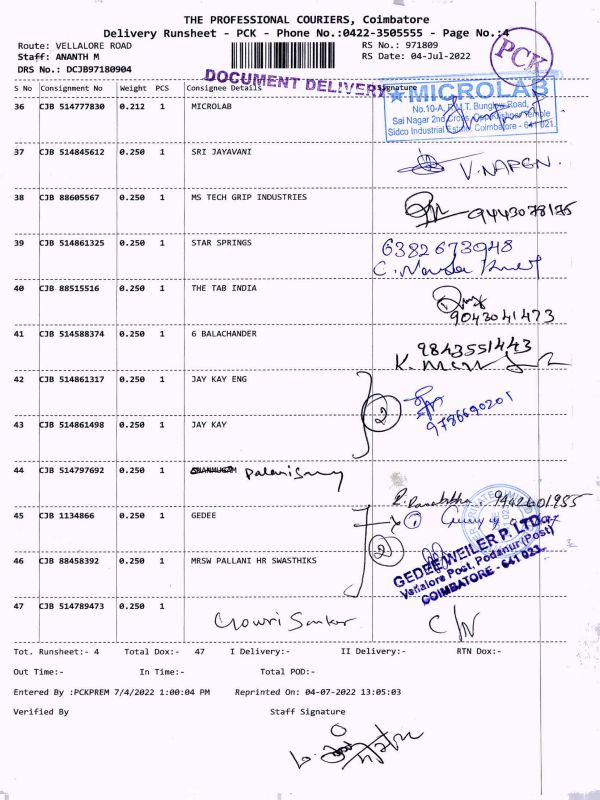 THE PROFESSIONAL COURIERS, Coimbatore
Delivery Runsheet - PCK - Phone No.:0422-3505555 - Page No.:4
Route: VELLALORE ROAD RS No.: 971809
Staff: ANANTH M RS Date: 04-Jul-2022
DRS No.: DCJB97180904
PCK
DOCUMENT DELIVERY
S No Consignment No Weight PCS Consignee Details Signature
36 CJB 514777830 0.212 1 MICROLAB
★MICROLAB
No.10-A, Bunglow Road,
Sai Nagar 2nd Cross, Temple
Sidco Industrial Estate, Coimbatore - 641 021.
37 CJB 514845612 0.250 1 SRI JAYAVANI
38 CJB 88605567 0.250 1 MS TECH GRIP INDUSTRIES 9443078175
39 CJB 514861325 0.250 1 STAR SPRINGS 6382673948
40 CJB 88515516 0.250 1 THE TAB INDIA
9043041473
41 CJB 514588374 0.250 1 6 BALACHANDER 9843551443
42 CJB 514861317 0.250 1 JAY KAY ENG
2
9786690201
43 CJB 514861498 0.250 1 JAY KAY
44 CJB 514797692 0.250 1 Palanisamy
9442601955
45 CJB 1134866 0.250 1 GEDEE
2
46 CJB 88458392 0.250 1 MRSW PALLANI HR SWASTHIKS
GEDEE WEILER P. LTD
Vellalore Post, Podanur (Post)
COIMBATORE - 641 023.
47 CJB 514789473 0.250 1 Gowri Sankar C/N
Tot. Runsheet:- 4 Total Dox:- 47 I Delivery:- II Delivery:- RTN Dox:-
Out Time:- In Time:- Total POD:-
Entered By :PCKPREM 7/4/2022 1:00:04 PM Reprinted On: 04-07-2022 13:05:03
Verified By Staff Signature